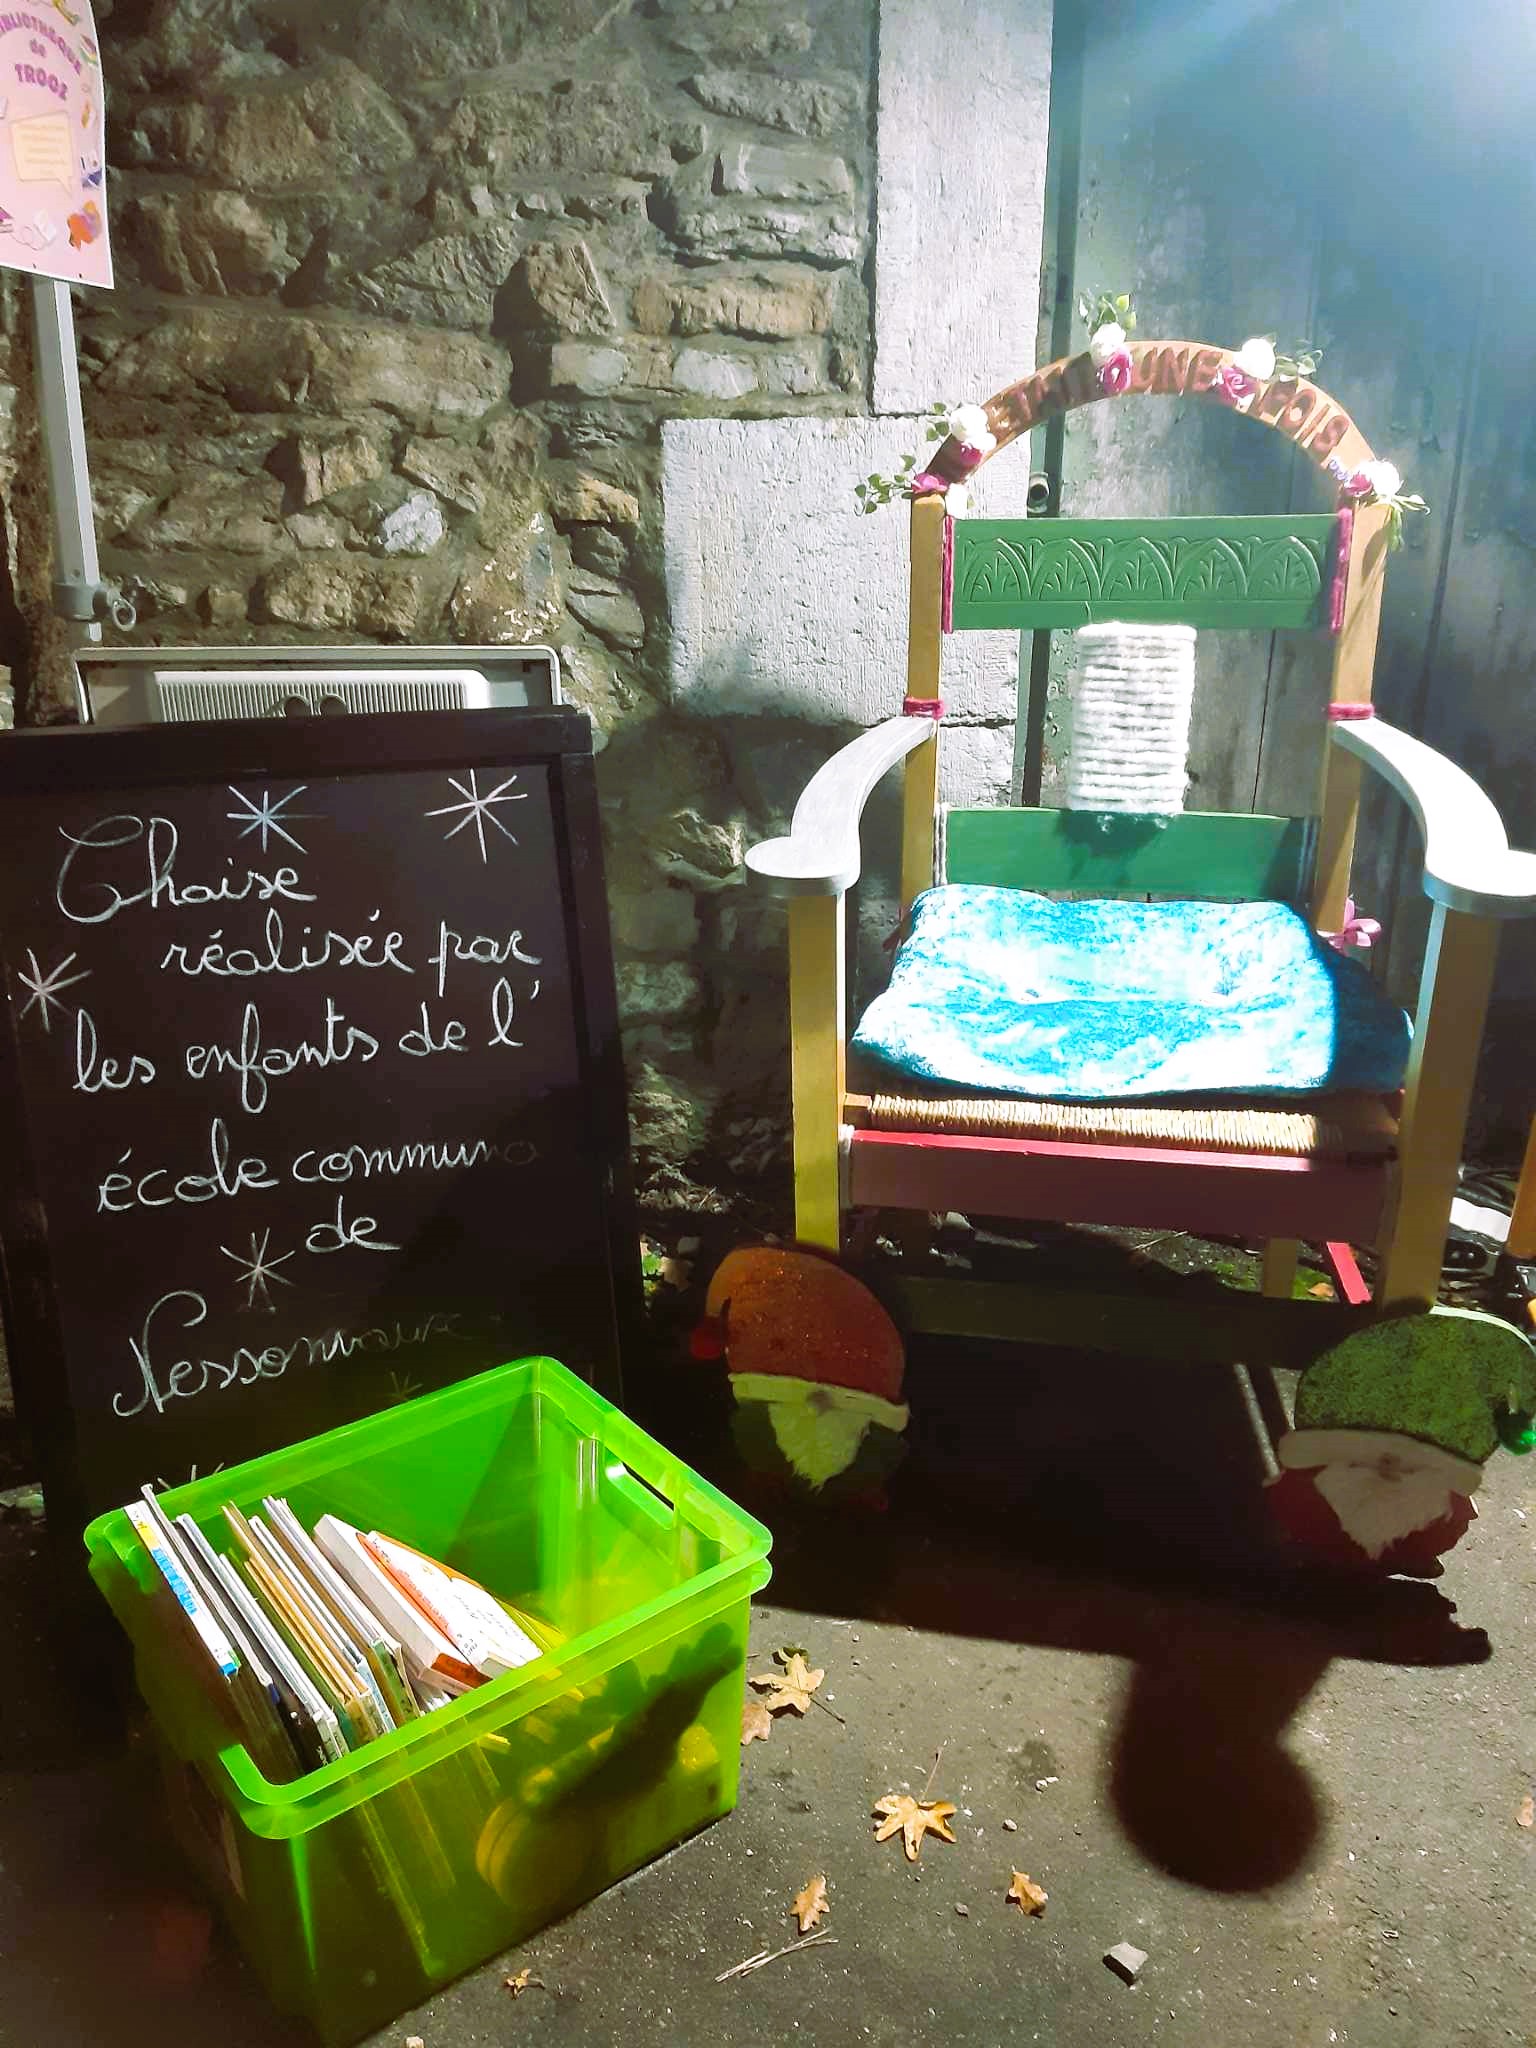 BIBLIOTHEQUE
de
TROOZ
IL ÉTAIT UNE FOIS
Chaise
réalisée par
les enfants de l'
école communa
de
Nessonvaux